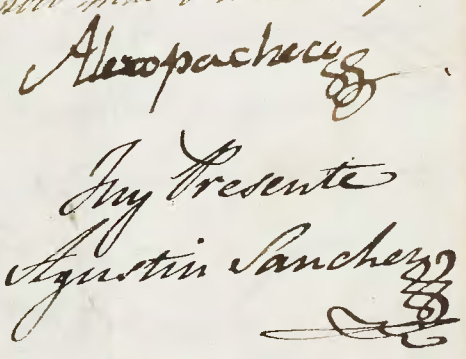 Alexo pacheco
Fuy Presente
Agustin Sanchez